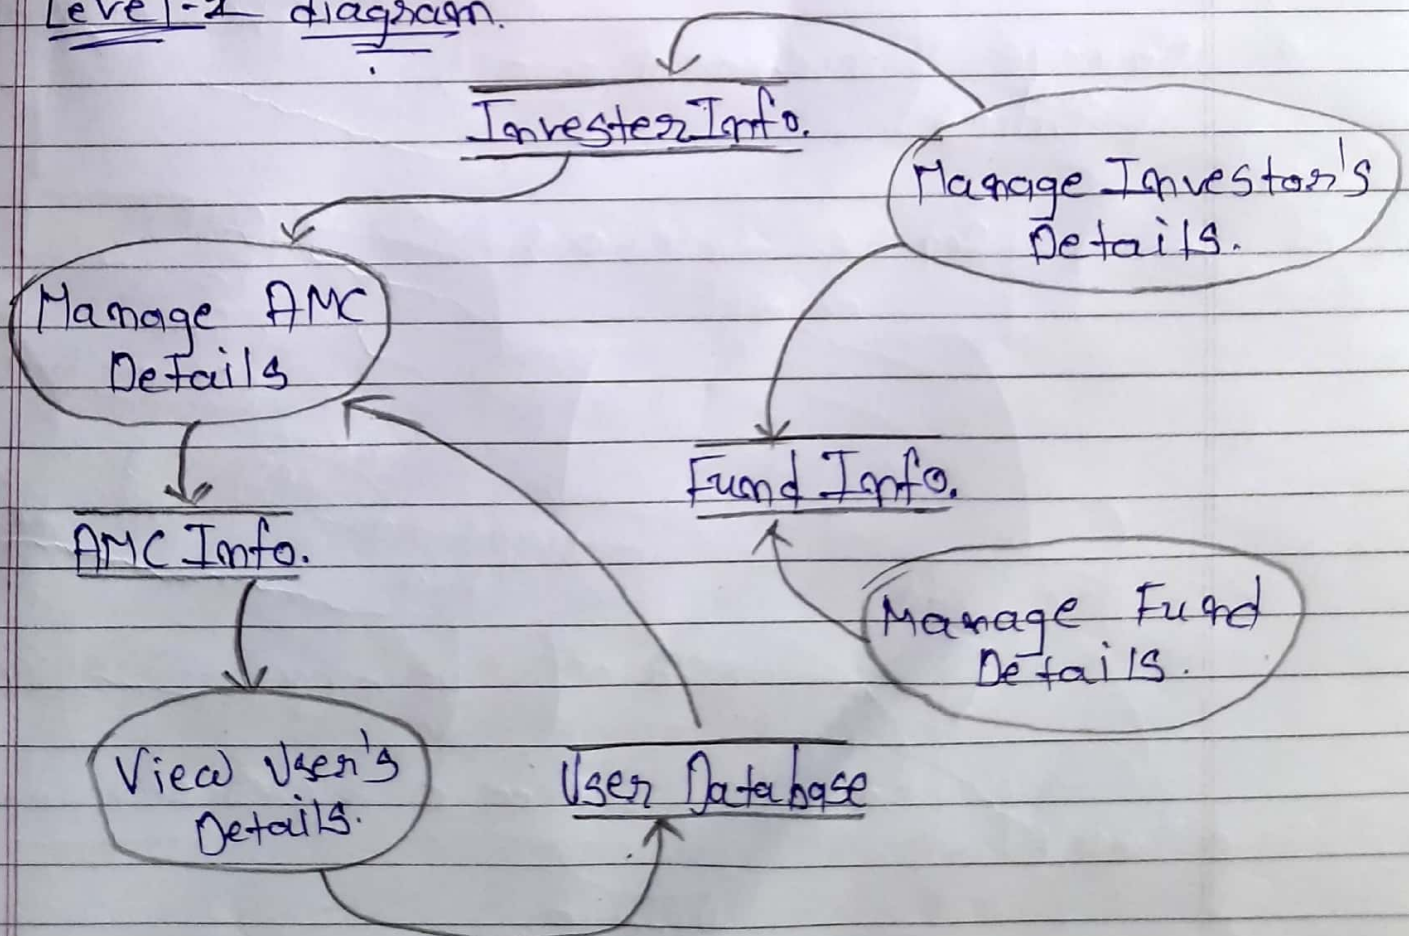 Level-1 diagram.
Invester Info.
Manage Investor's
Details.
Manage AMC
Details
Fund Info.
AMC Info.
Manage Fund
Details.
View User's
Details.
User Database